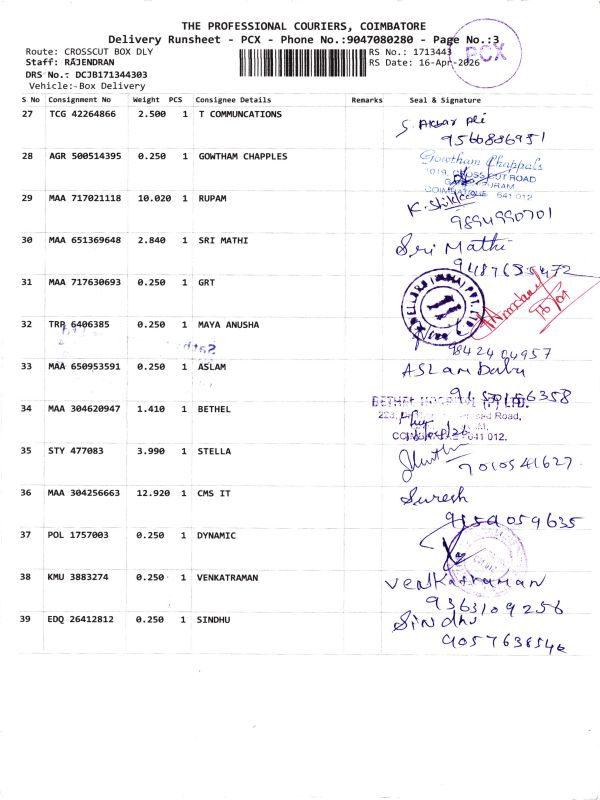 THE PROFESSIONAL COURIERS, COIMBATORE
Delivery Runsheet - PCX - Phone No.:9047080280 - Page No.:3
Route: CROSSCUT BOX DLY RS No.: 1713443
PCX
Staff: RAJENDRAN RS Date: 16-Apr-2026
DRS No.: DCJB171344303
Vehicle:-Box Delivery
S No Consignment No Weight PCS Consignee Details Remarks Seal & Signature
27 TCG 42264866 2.500 1 T COMMUNCATIONS
S. Akbar Ali
9566886951
28 AGR 500514395 0.250 1 GOWTHAM CHAPPLES
Gowtham Chappals
1019, CROSS CUT ROAD
COIMBATORE 641 012
29 MAA 717021118 10.020 1 RUPAM
9894990701
30 MAA 651369648 2.840 1 SRI MATHI
Sri Mathi
9487635472
31 MAA 717630693 0.250 1 GRT
32 TRP 6406385 0.250 1 MAYA ANUSHA
9842404957
33 MAA 650953591 0.250 1 ASLAM
ASLam Babu
34 MAA 304620947 1.410 1 BETHEL
BETHEL HOSPITAL (P) LTD.
Road,
COIMBATORE - 641 012.
35 STY 477083 3.990 1 STELLA
7010541627
36 MAA 304256663 12.920 1 CMS IT
Suresh
9150059635
37 POL 1757003 0.250 1 DYNAMIC
38 KMU 3883274 0.250 1 VENKATRAMAN
Venkatraman
9363109256
39 EDQ 26412812 0.250 1 SINDHU
Sindhu
9057638546